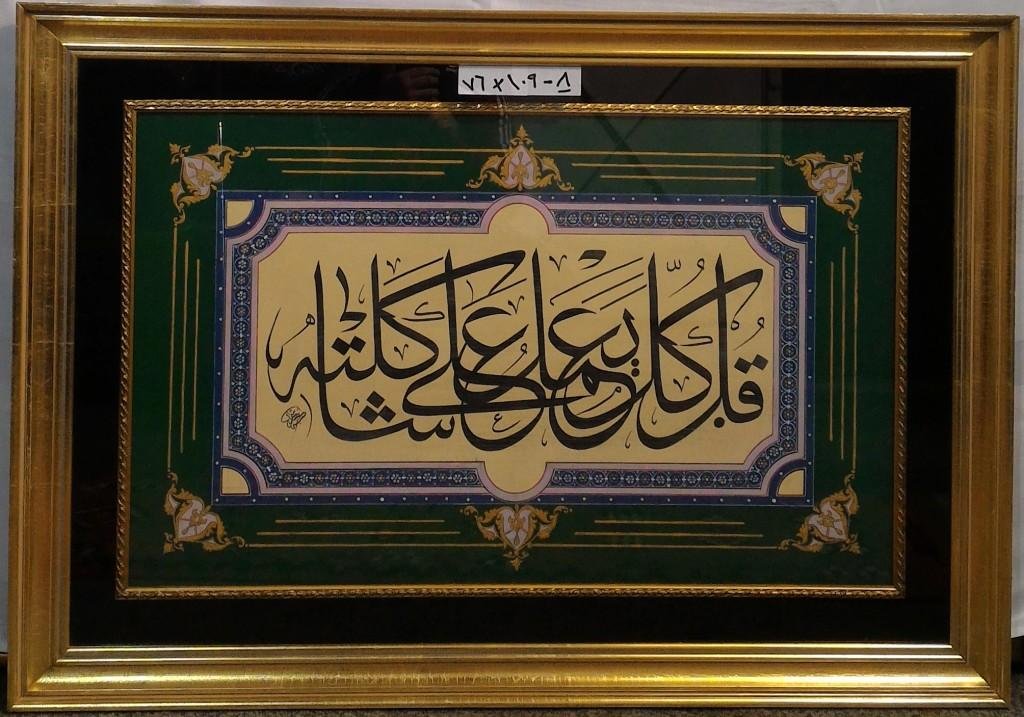 ٧٦×١٠٩-٨
قل كلٌّ يعمل على شاكلته